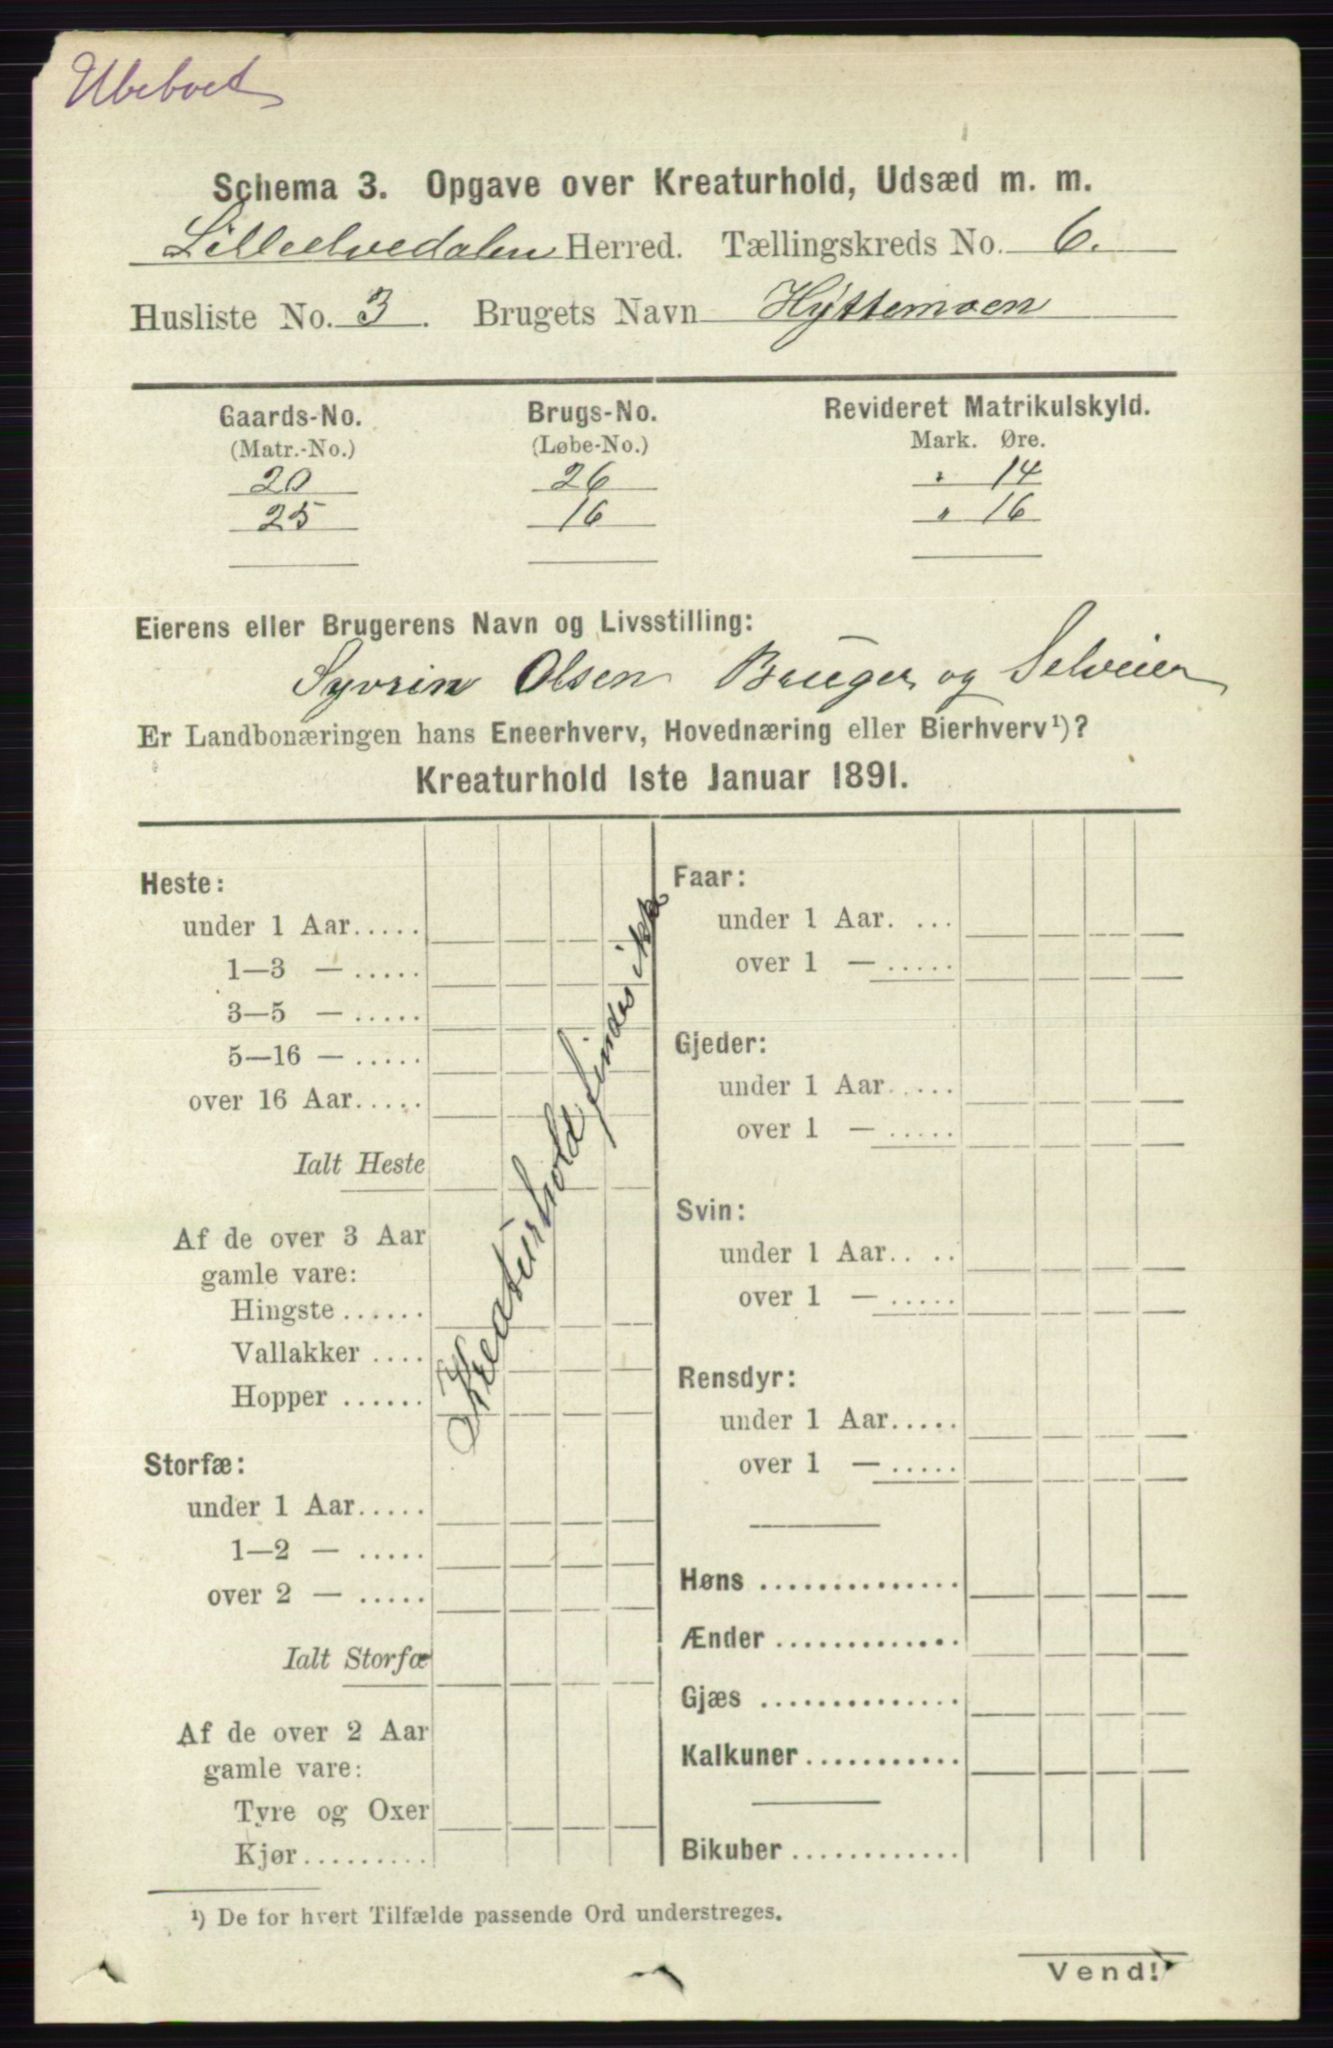 Ubeboet
Schema 3. Opgave over Kreaturhold, Udsæd m. m.
Lilleelvedalen Herred. Tællingskreds No. 6.
Husliste No. 3. Brugets Navn Hyttemoen
Gaards-No. Brugs-No. Revideret Matrikulskyld.
(Matr.-No.) (Løbe-No.) Mark. Øre.
20 26 " 14
25 16 " 16
Eierens eller Brugerens Navn og Livsstilling:
Syvrin Olsen Bruger og Selveier
Er Landbonæringen hans Eneerhverv, Hovednæring eller Bierhverv¹)?
Kreaturhold 1ste Januar 1891.
Heste:
under 1 Aar.....
1—3 — .....
3—5 — .....
5—16 — .....
over 16 Aar.....
Ialt Heste
Af de over 3 Aar
gamle vare:
Hingste......
Vallakker ....
Hopper ......
Storfæ:
under 1 Aar.....
1—2 — .....
over 2 — .....
Ialt Storfæ
Af de over 2 Aar
gamle vare:
Tyre og Oxer
Kjør.........
Kreaturhold findes ikke
Faar:
under 1 Aar. ...
over 1 — .....
Gjeder:
under 1 Aar.....
over 1 — .....
Svin:
under 1 Aar.. ..
over 1 — .....
Rensdyr:
under 1 Aar.....
over 1 — .....
Høns ..............
Ænder .............
Gjæs ..............
Kalkuner...........
Bikuber ............
¹) De for hvert Tilfælde passende Ord understreges.
Vend!